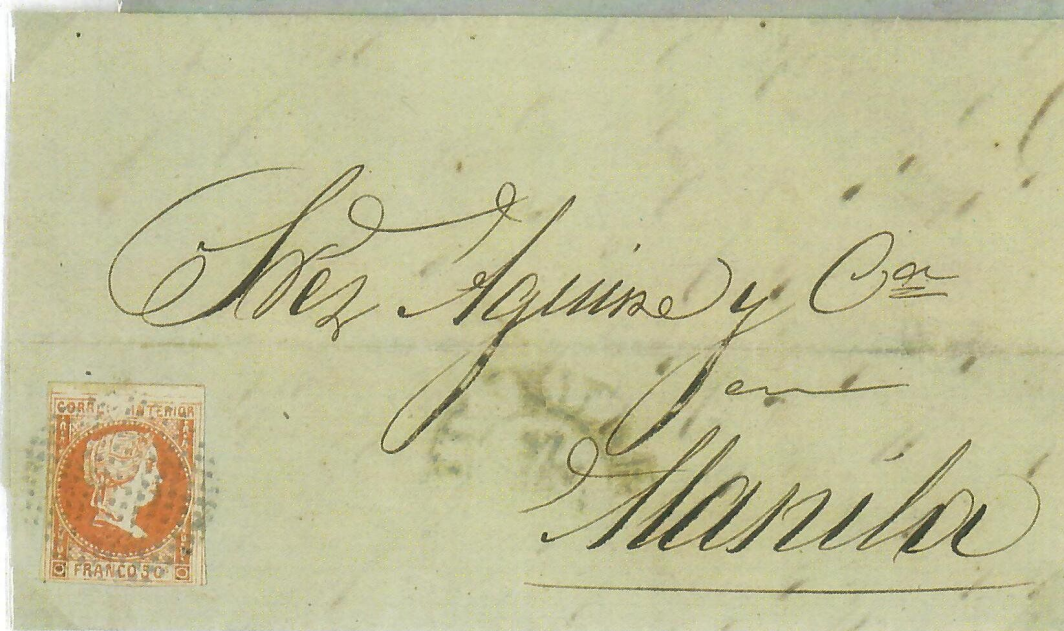 Sres Aguirre y Ca
en
Manila
CORREOS INTERIOR
FRANCO 5 C